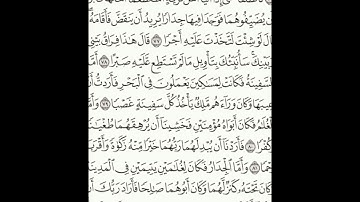 ن يُضَيِّفُوهُمَا فَوَجَدَا فِيهَا جِدَارًا يُرِيدُ أَن يَنقَضَّ فَأَقَامَهُۥ
قَالَ لَوْ شِئْتَ لَتَّخَذْتَ عَلَيْهِ أَجْرًا ٧٧ قَالَ هَٰذَا فِرَاقُ بَيْنِي
بَيْنِكَ سَأُنَبِّئُكَ بِتَأْوِيلِ مَا لَمْ تَسْتَطِع عَّلَيْهِ صَبْرًا ٧٨ أَ
لسَّفِينَةُ فَكَانَتْ لِمَسَٰكِينَ يَعْمَلُونَ فِي ٱلْبَحْرِ فَأَرَدتُّ أَ
عِيبَهَا وَكَانَ وَرَآءَهُم مَّلِكٌ يَأْخُذُ كُلَّ سَفِينَةٍ غَصْبًا ٧٩ وَأَ
لْغُلَٰمُ فَكَانَ أَبَوَاهُ مُؤْمِنَيْنِ فَخَشِينَآ أَن يُرْهِقَهُمَا طُغْيَٰنًا
كُفْرًا ٨٠ فَأَرَدْنَآ أَن يُبْدِلَهُمَا رَبُّهُمَا خَيْرًا مِّنْهُ زَكَوٰةً وَأَقْرَ
حْمًا ٨١ وَأَمَّا ٱلْجِدَارُ فَكَانَ لِغُلَٰمَيْنِ يَتِيمَيْنِ فِي ٱلْمَدِينَ
كَانَ تَحْتَهُۥ كَنزٌ لَّهُمَا وَكَانَ أَبُوهُمَا صَٰلِحًا فَأَرَادَ رَبُّكَ أَن